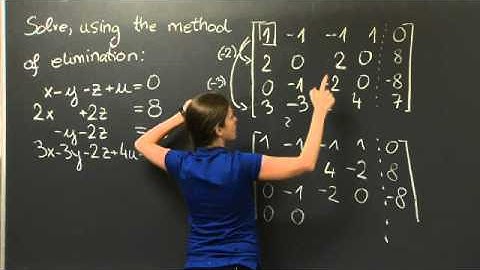 Solve, using the method
of elimination:
x-y-z+u=0
2x +2z =8
-y-2z =
3x-3y-2z+4u
(-2)
(-3)
1 -1 -1 1 0
2 0 2 0 8
0 -1 2 0 -8
3 -3 4 7
1 -1 -1 1 0
4 -2 8
0 -1 -2 0 -8
0 0